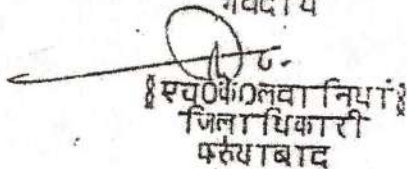 भवदीय
§एच0के0लवानियां§
जिलाधिकारी
फर्रुखाबाद